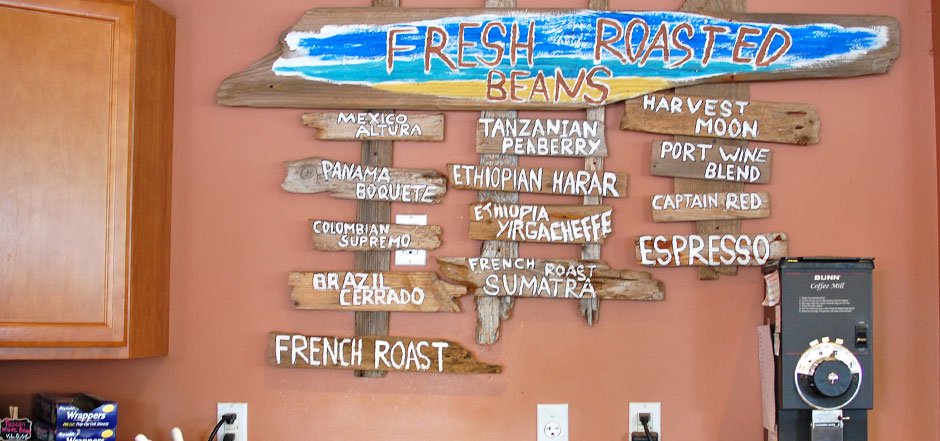 FRESH ROASTED
BEANS
MEXICO
ALTURA
PANAMA
BOQUETE
COLOMBIAN
SUPREMO
BRAZIL
CERRADO
FRENCH ROAST
TANZANIAN
PEABERRY
ETHIOPIAN HARAR
ETHIOPIA
YIRGACHEFFE
FRENCH ROAST
SUMATRA
HARVEST
MOON
PORT WINE
BLEND
CAPTAIN RED
ESPRESSO
BUNN
Coffee Mill
Reynolds
Wrappers